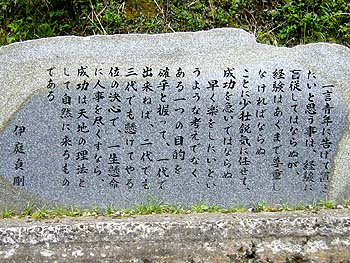 一言青年に告げて置き
たいと思う事は、経験に
盲従してはならぬが、
経験はあくまで尊重し
なければならぬ
ことに少壮鋭気に任せて、
成功を急いではならぬ
早く楽をしたいとい
うような考えでなく
ある一つの目的を
確乎と握って、一代で
出来ねば、二代でも
三代でも懸けてやる
位の決心で、一生懸命
に人事を尽くすなら、
成功は天地の理法と
して自然に来るもの
である
伊庭貞剛